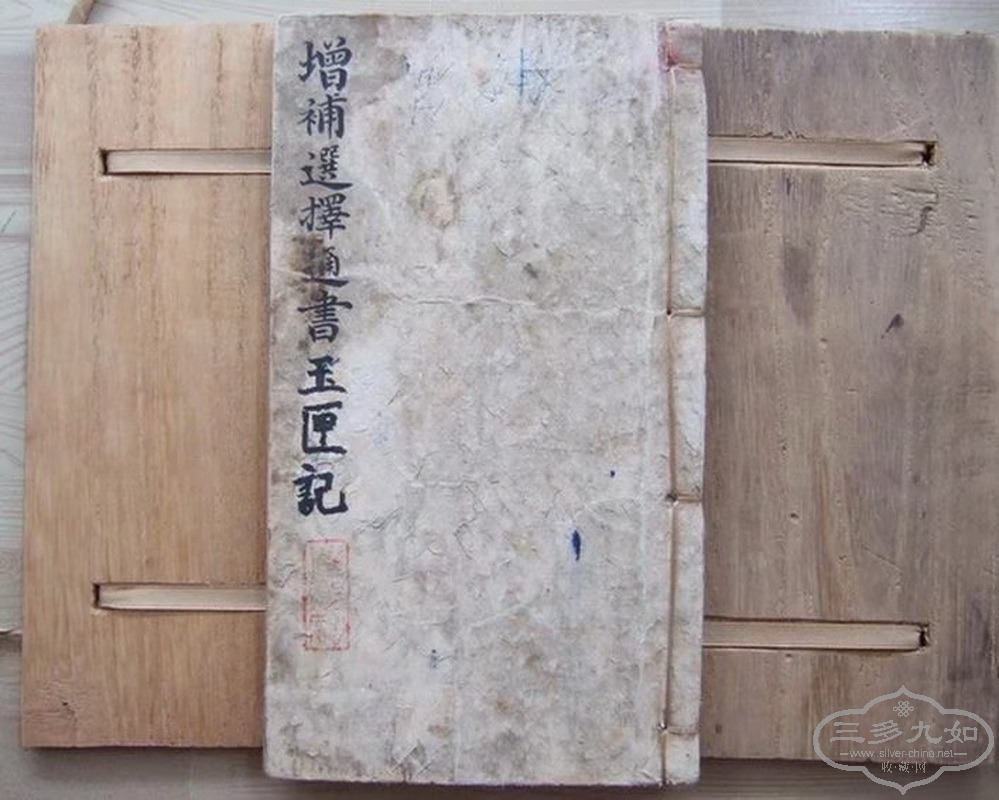 增補選擇通書玉匣記
三多九如
www.silver-china.net
收·藏·网